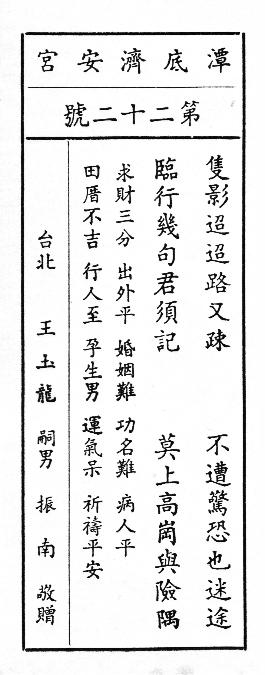 潭底濟安宮
第二十二號
隻影迢迢路又疎 不遭驚恐也迷途
臨行幾句君須記 莫上高崗與險隅
求財三分 出外平 婚姻難 功名難 病人平
田厝不吉 行人至 孕生男 運氣呆 祈禱平安
台北 王玉龍 嗣男 振南 敬贈